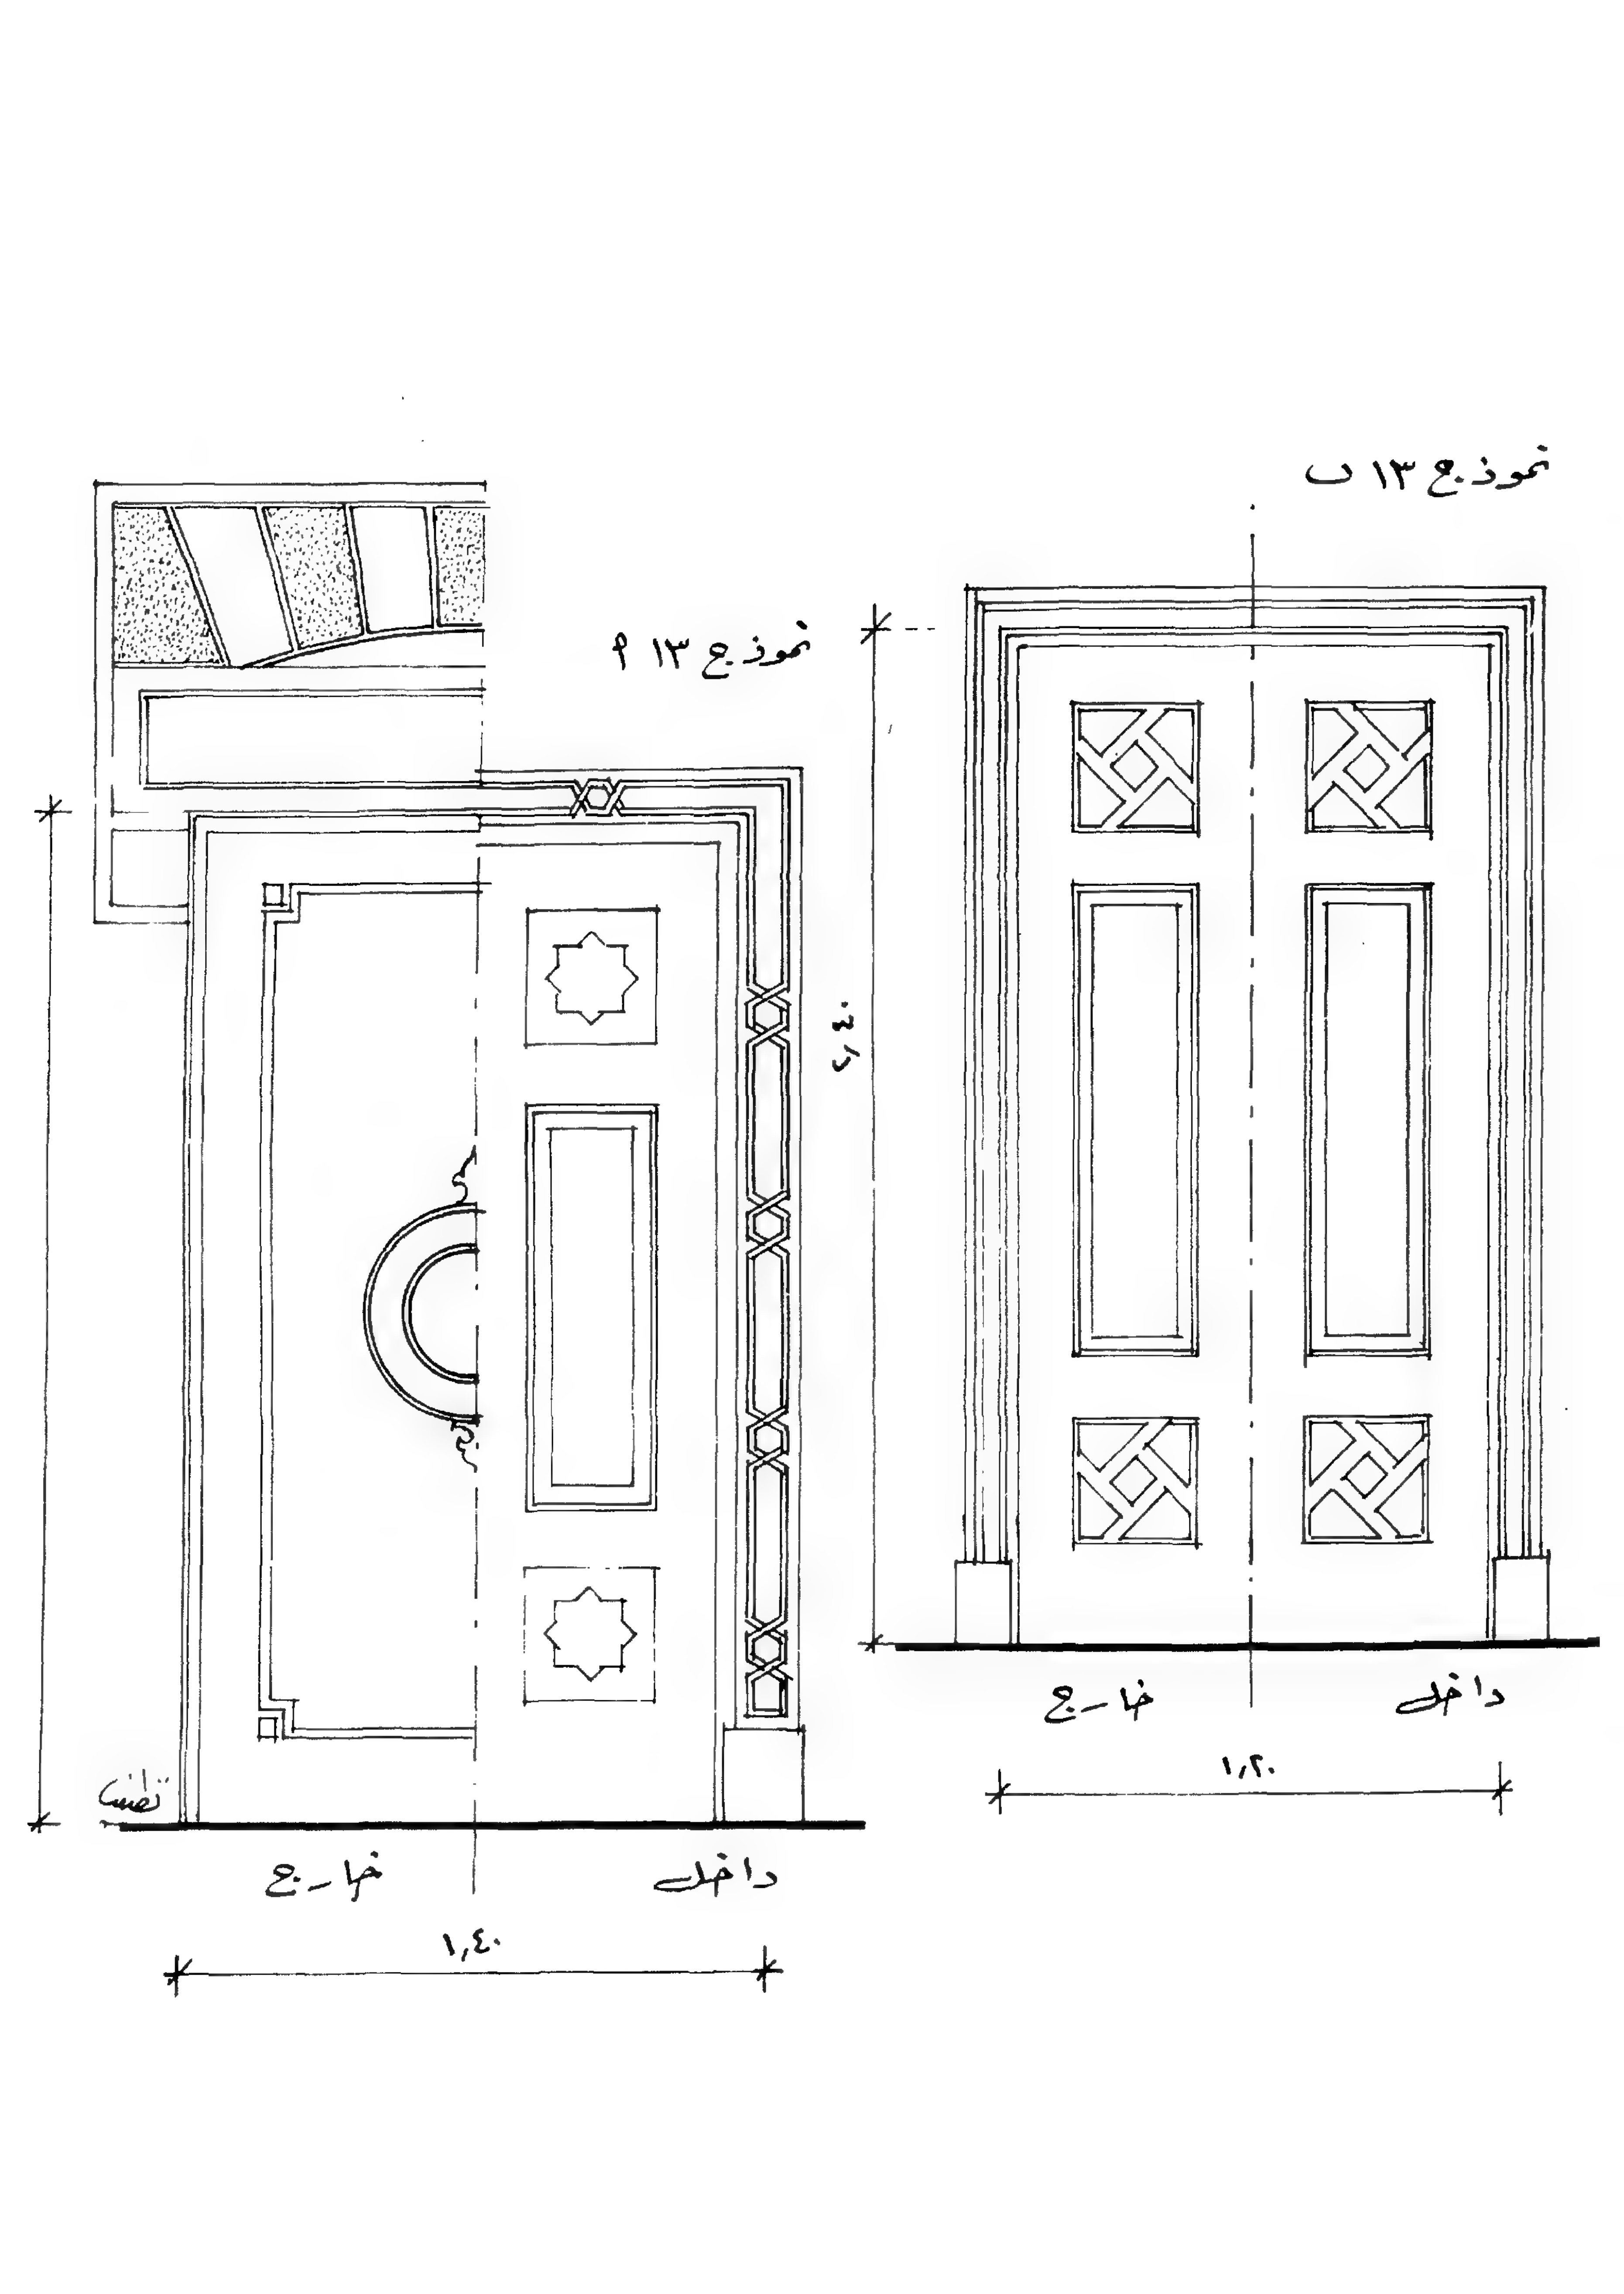 نموذج ١٣ ب
نموذج ١٣ أ
٢,٤٠
خارج
داخل
١,٢٠
خارج
داخل
١,٤٠